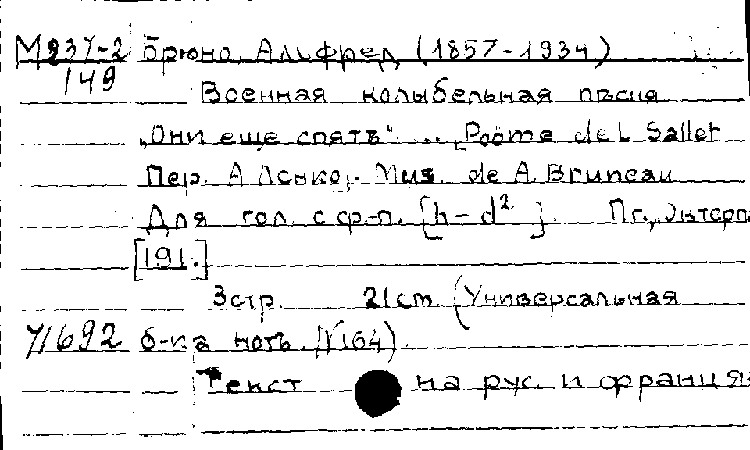 М237-2 Брюно, Альфред (1857-1934)
149
Военная колыбельная пѣсня
„Они еще спятъ“ ... Poème de L Sallet
Пер. А Mus. de A. Bruneau
Для гол. с ф-п. [h-d²]. Пг., Интерп
[191.]
3 стр. 21 cm (Универсальная
71692 б-ка нотъ. №164).
Текст на рус. и француз